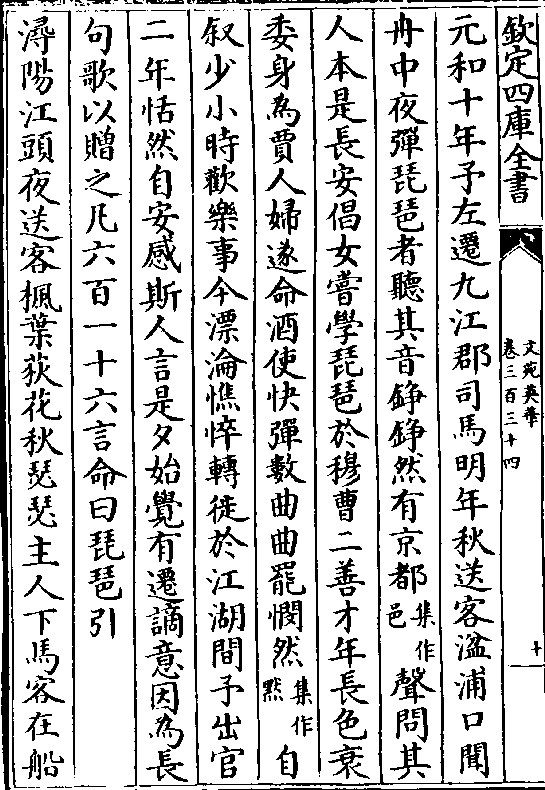 欽定四庫全書
文苑英華
卷三百三十四
十
元和十年予左遷九江郡司馬明年秋送客湓浦口聞
舟中夜彈琵琶者聽其音錚錚然有京都集作邑聲問其
人本是長安倡女嘗學琵琶於穆曹二善才年長色衰
委身為賈人婦遂命酒使快彈數曲曲罷憫然集作黙自
叙少小時歡樂事今漂淪憔悴轉徙於江湖間予出官
二年恬然自安感斯人言是夕始覺有遷謫意因為長
句歌以贈之凡六百一十六言命曰琵琶引
潯陽江頭夜送客楓葉荻花秋瑟瑟主人下馬客在船